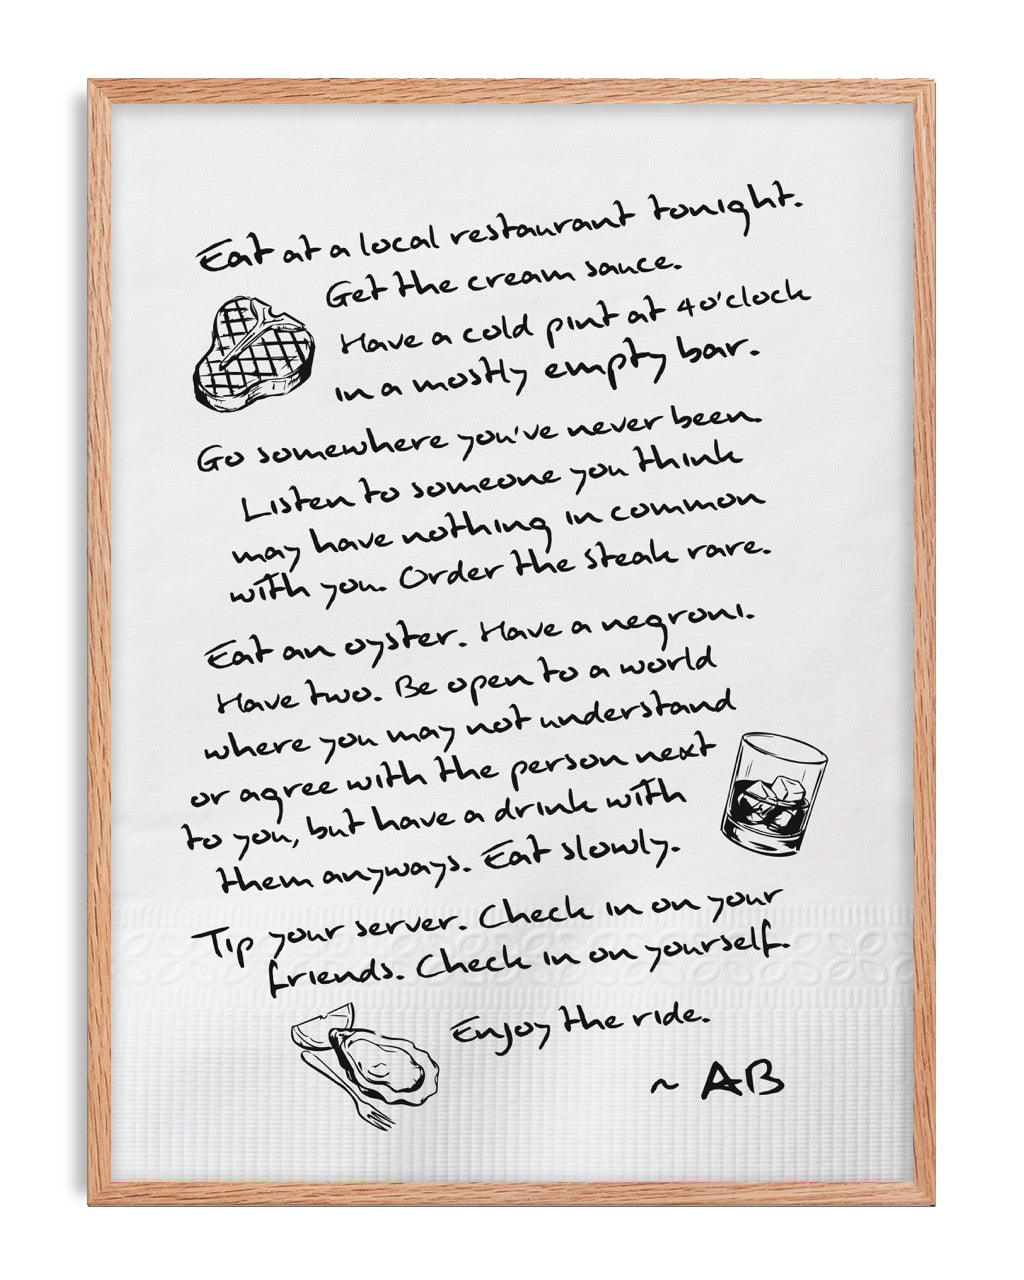 Eat at a local restaurant tonight.
Get the cream sauce.
Have a cold pint at 4 o'clock
in a mostly empty bar.
Go somewhere you've never been.
Listen to someone you think
may have nothing in common
with you. Order the steak rare.
Eat an oyster. Have a negroni.
Have two. Be open to a world
where you may not understand
or agree with the person next
to you, but have a drink with
them anyways. Eat slowly.
Tip your server. Check in on your
friends. Check in on yourself.
Enjoy the ride.
~ AB